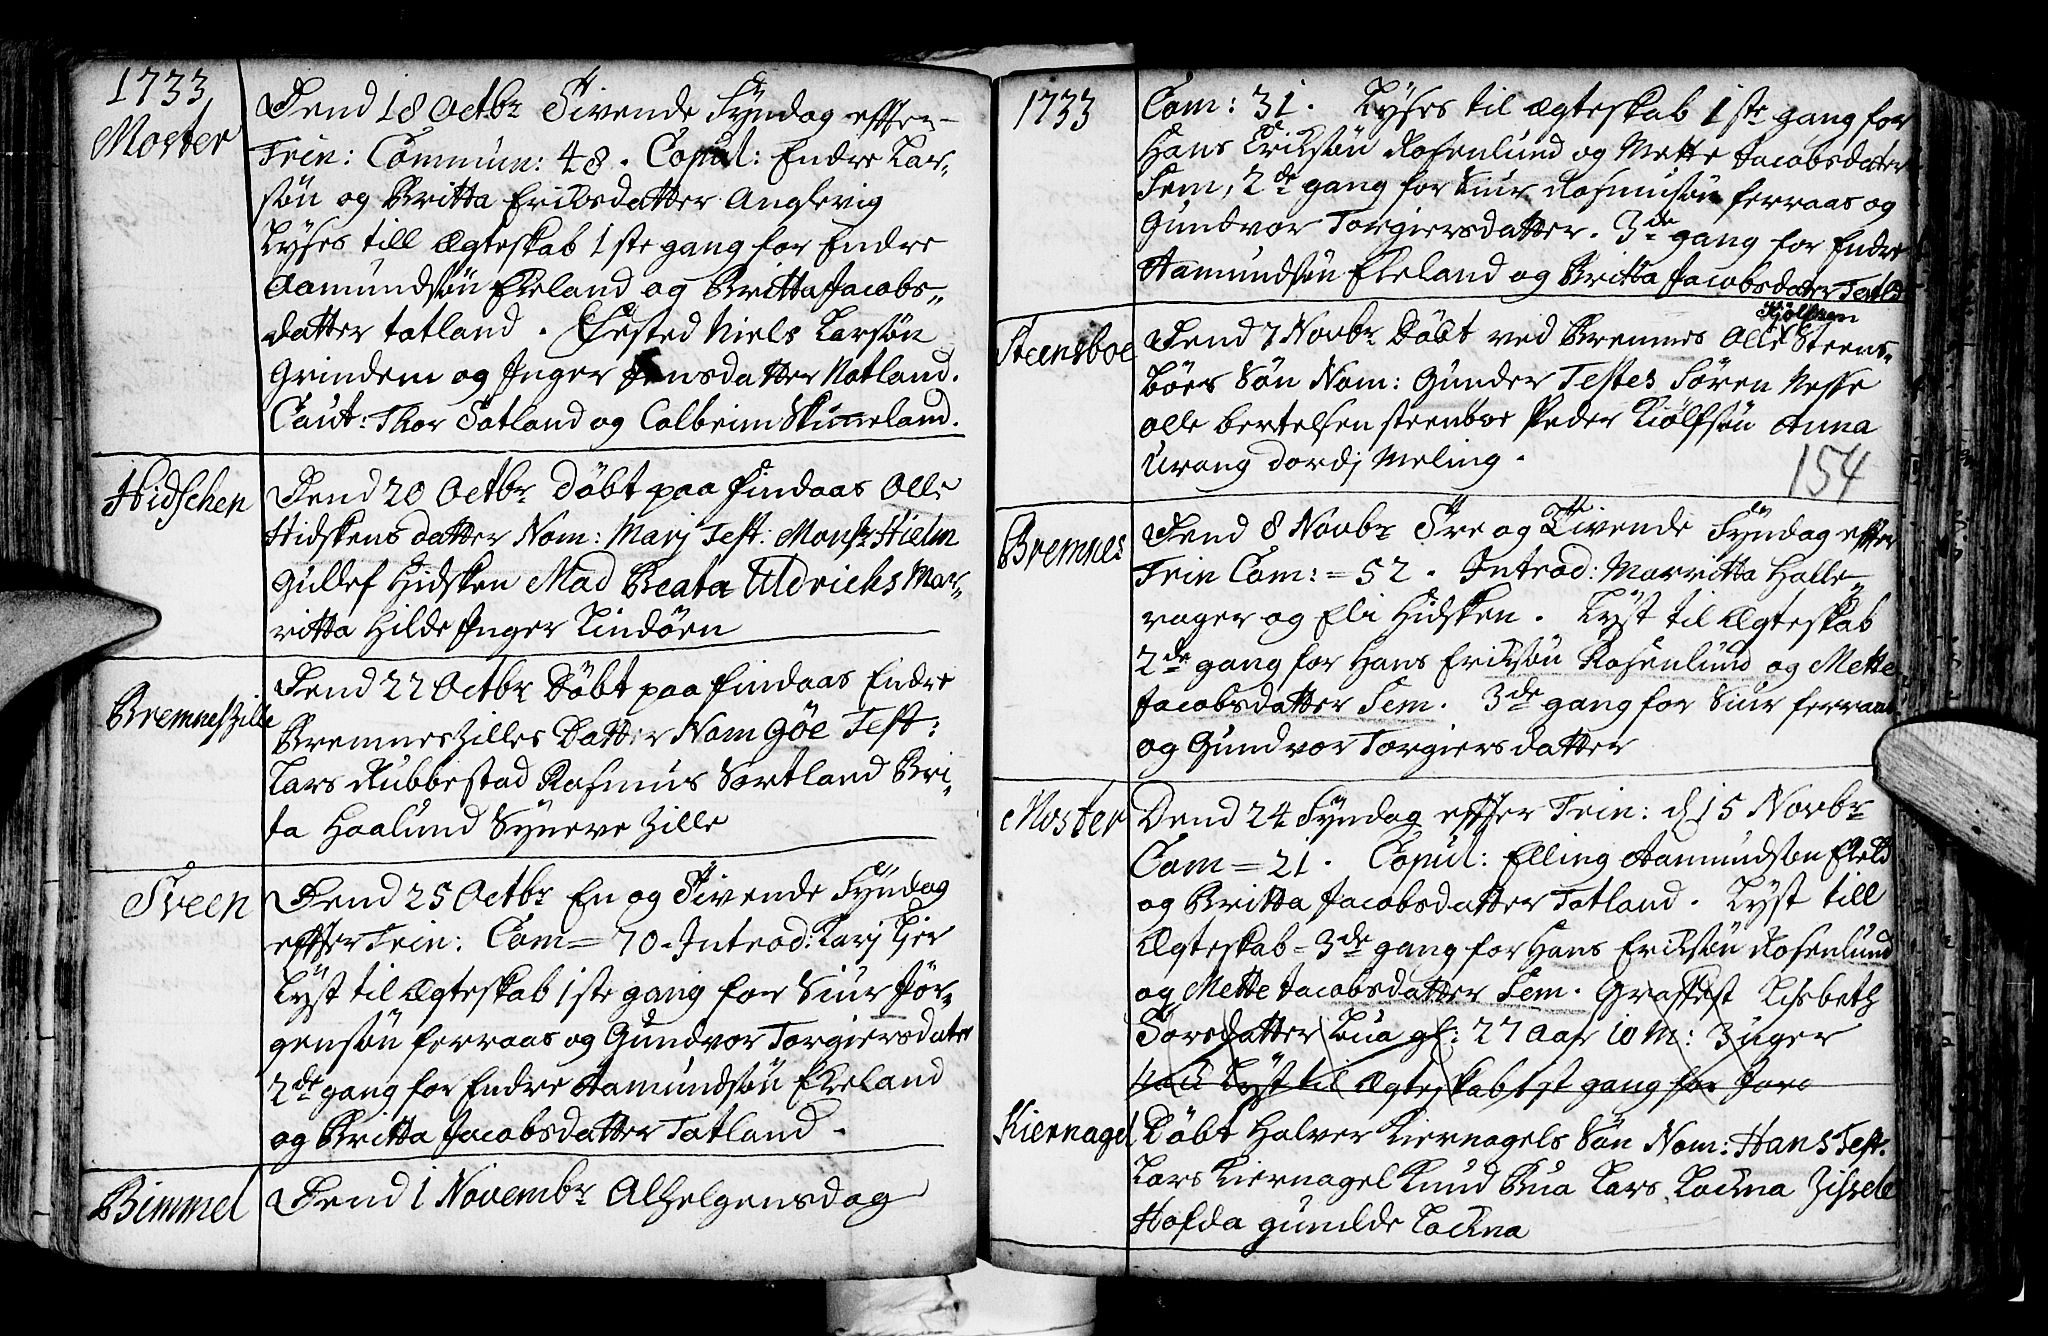 1733
Moster
Dend 18 Octbr Tivende Syndag effter
Trin: Commun: 48. Copul: Endre Lar-
søn og Britta Eriksdatter Anglevig
Lyses till Ægteskab 1ste gang for Endre
Aamundsøn Ekeland og Britta Jacobs-
datter totland. Fæsted Niels Larsøn
Grindem og Inger Jensdatter Notland.
Caut: Thor Totland og Colbeinn Skimeland.
Hidschen
Dend 20 Octbr Døbt paa Findaas Olle
Hidskens datter Nom: Marj Test: Monsr Hielm
Gullef Hidsken Mad Beata Uldrichs Mar-
ritta Hilde Inger Lindøen
Bremneszille
Dend 22 Octbr Døbt paa Findaas Endre
Bremneszilles Datter Nom Gøe Test:
Lars Rubbestad Rasmus Sortland Bri-
ta Haalund Synneve Zille
Sveen
Dend 25 Octbr En og Tivende Syndag
effter Trin: Com = 70. Introd: Karj Kier
Lyst til Ægteskab 1ste gang for Siur Jør-
gensøn Ferraas og Gundvor Torgiersdatr
2de gang for Endre Aamundsøn Ekeland
og Britta Jacobsdatter Totland.
Bimmel
Dend 1 Novembr Alhelgensdag
1733
Com: 31. Lyses til Ægteskab 1ste gang for
Hans Eriksøn Rosenlund og Mette Jacobsdater
Sem, 2de gang for Siur Rasmusøn Ferraas og
Gundvor Torgiersdatter. 3de gang for Endre
Aamundsøn Ekeland og Britta Jacobsdater Totld
Steensboe
Kjølfsen
Dend 7 Novbr Døbt ved Bremnes Olle Steens-
böes Søn Nom: Gunder Testes Søren Nesse
Olle Bertelsen steenboe Peder Kiølfsøn Anna
Urang dordj Meling.
154
Bremnes
Dend 8 Novbr Tre og Tivende Syndag effter
Trin Com: = 52. Introd: Marritta Halle-
rager og Eli Hidsken. Lyst til Ægteskab
2de gang for Hans Eriksøn Rosenlund og Mette
Jacobsdatter Sem. 3de gang for Siur Ferraas
og Gundvor Torgiersdatter
Moster
Dend 24 Syndag effter Trin: d 15 Novbr
Com = 21. Copul: Elling Aamundsøn Ekeld
og Britta Jacobsdatter Totland. Lyst till
Ægteskab = 3de gang for Hans Eriksøn Rosenlund
og Mette Jacobsdatter Sem. Graffest Lisbeth
Torsdatter Bua gl: 27 Aar 10 M: 3 uger
Lyst til Ægteskab 1st gang for Jore
Kiernagel
Døbt Halver Kiernagels Søn Nom: Hans Test.
Lars Kiernagel Knud Bua Lars Lockna Zissele
Hofda gunilde Lockna